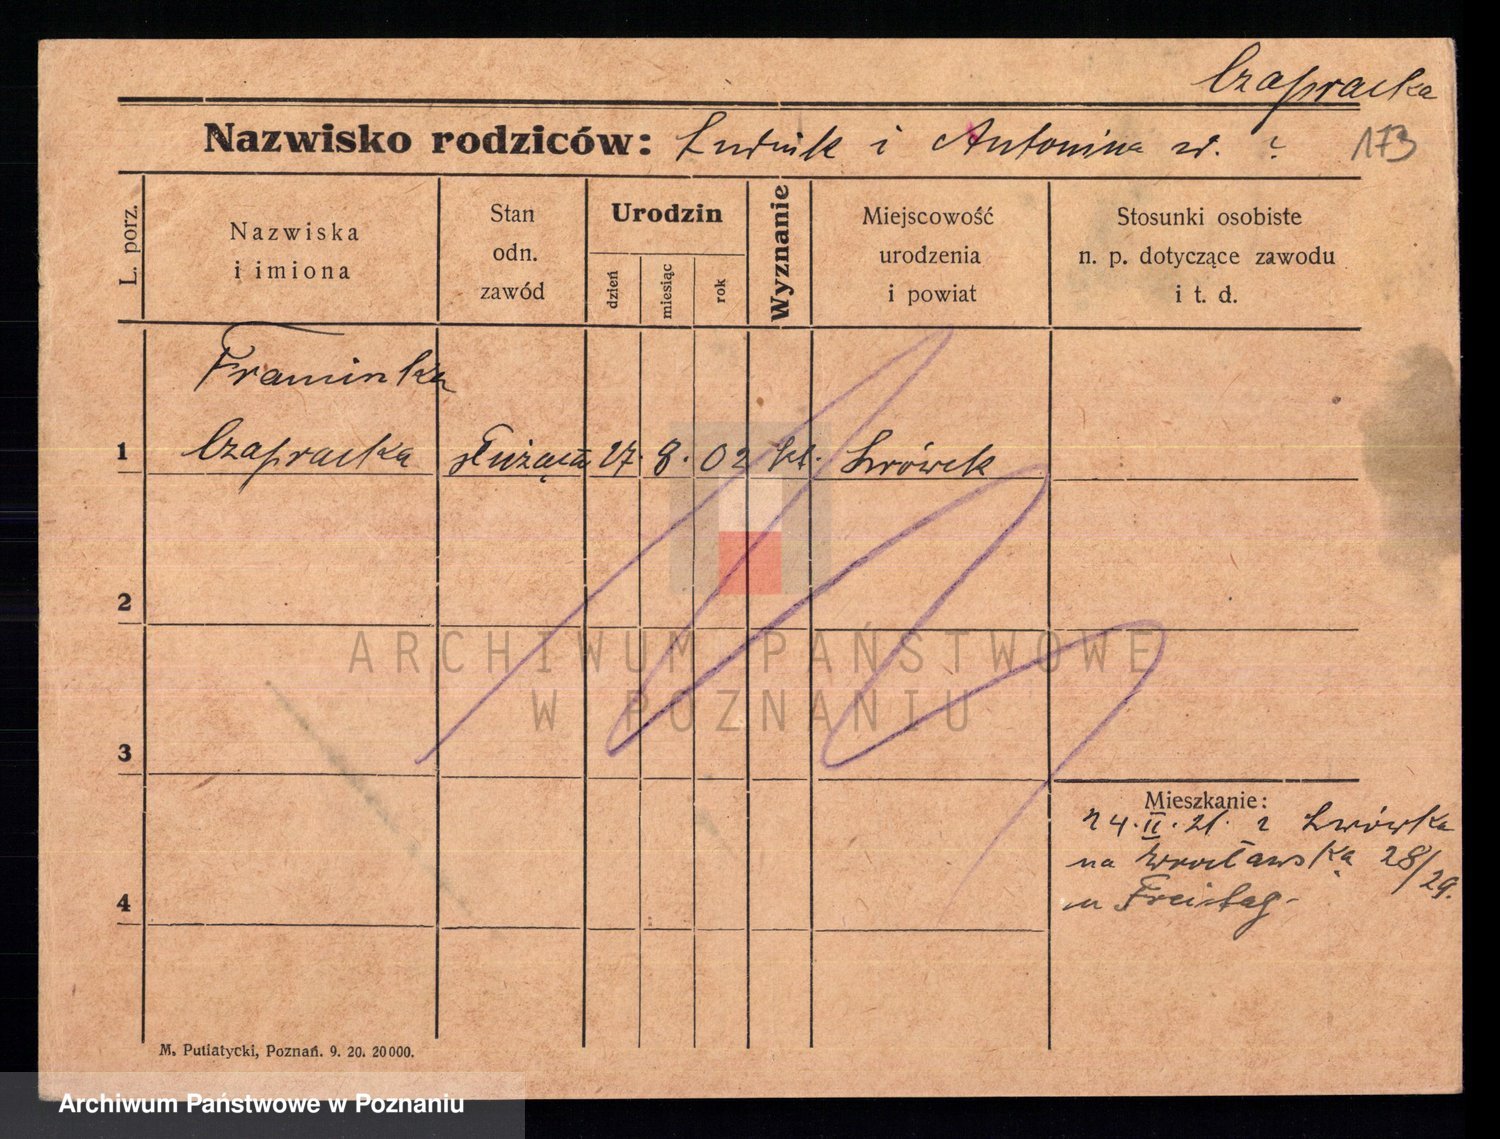 Czapracka
Nazwisko rodziców: Ludwik i Antonina z. ? 173
L. porz.
Nazwiska
i imiona
Stan
odn.
zawód
Urodzin
dzień
miesiąc
rok
Wyznanie
Miejscowość
urodzenia
i powiat
Stosunki osobiste
n. p. dotyczące zawodu
i t. d.
1 Czapracka służąca 27. 8. 02 kt. Lwówek
2
3
4
Mieszkanie:
24.II.21. z Lwówka
na Wrocławska 28/29.
u Freitag
M. Putiatycki, Poznań. 9. 20. 20000.
ARCHIWUM PAŃSTWOWE
W POZNANIU
Archiwum Państwowe w Poznaniu